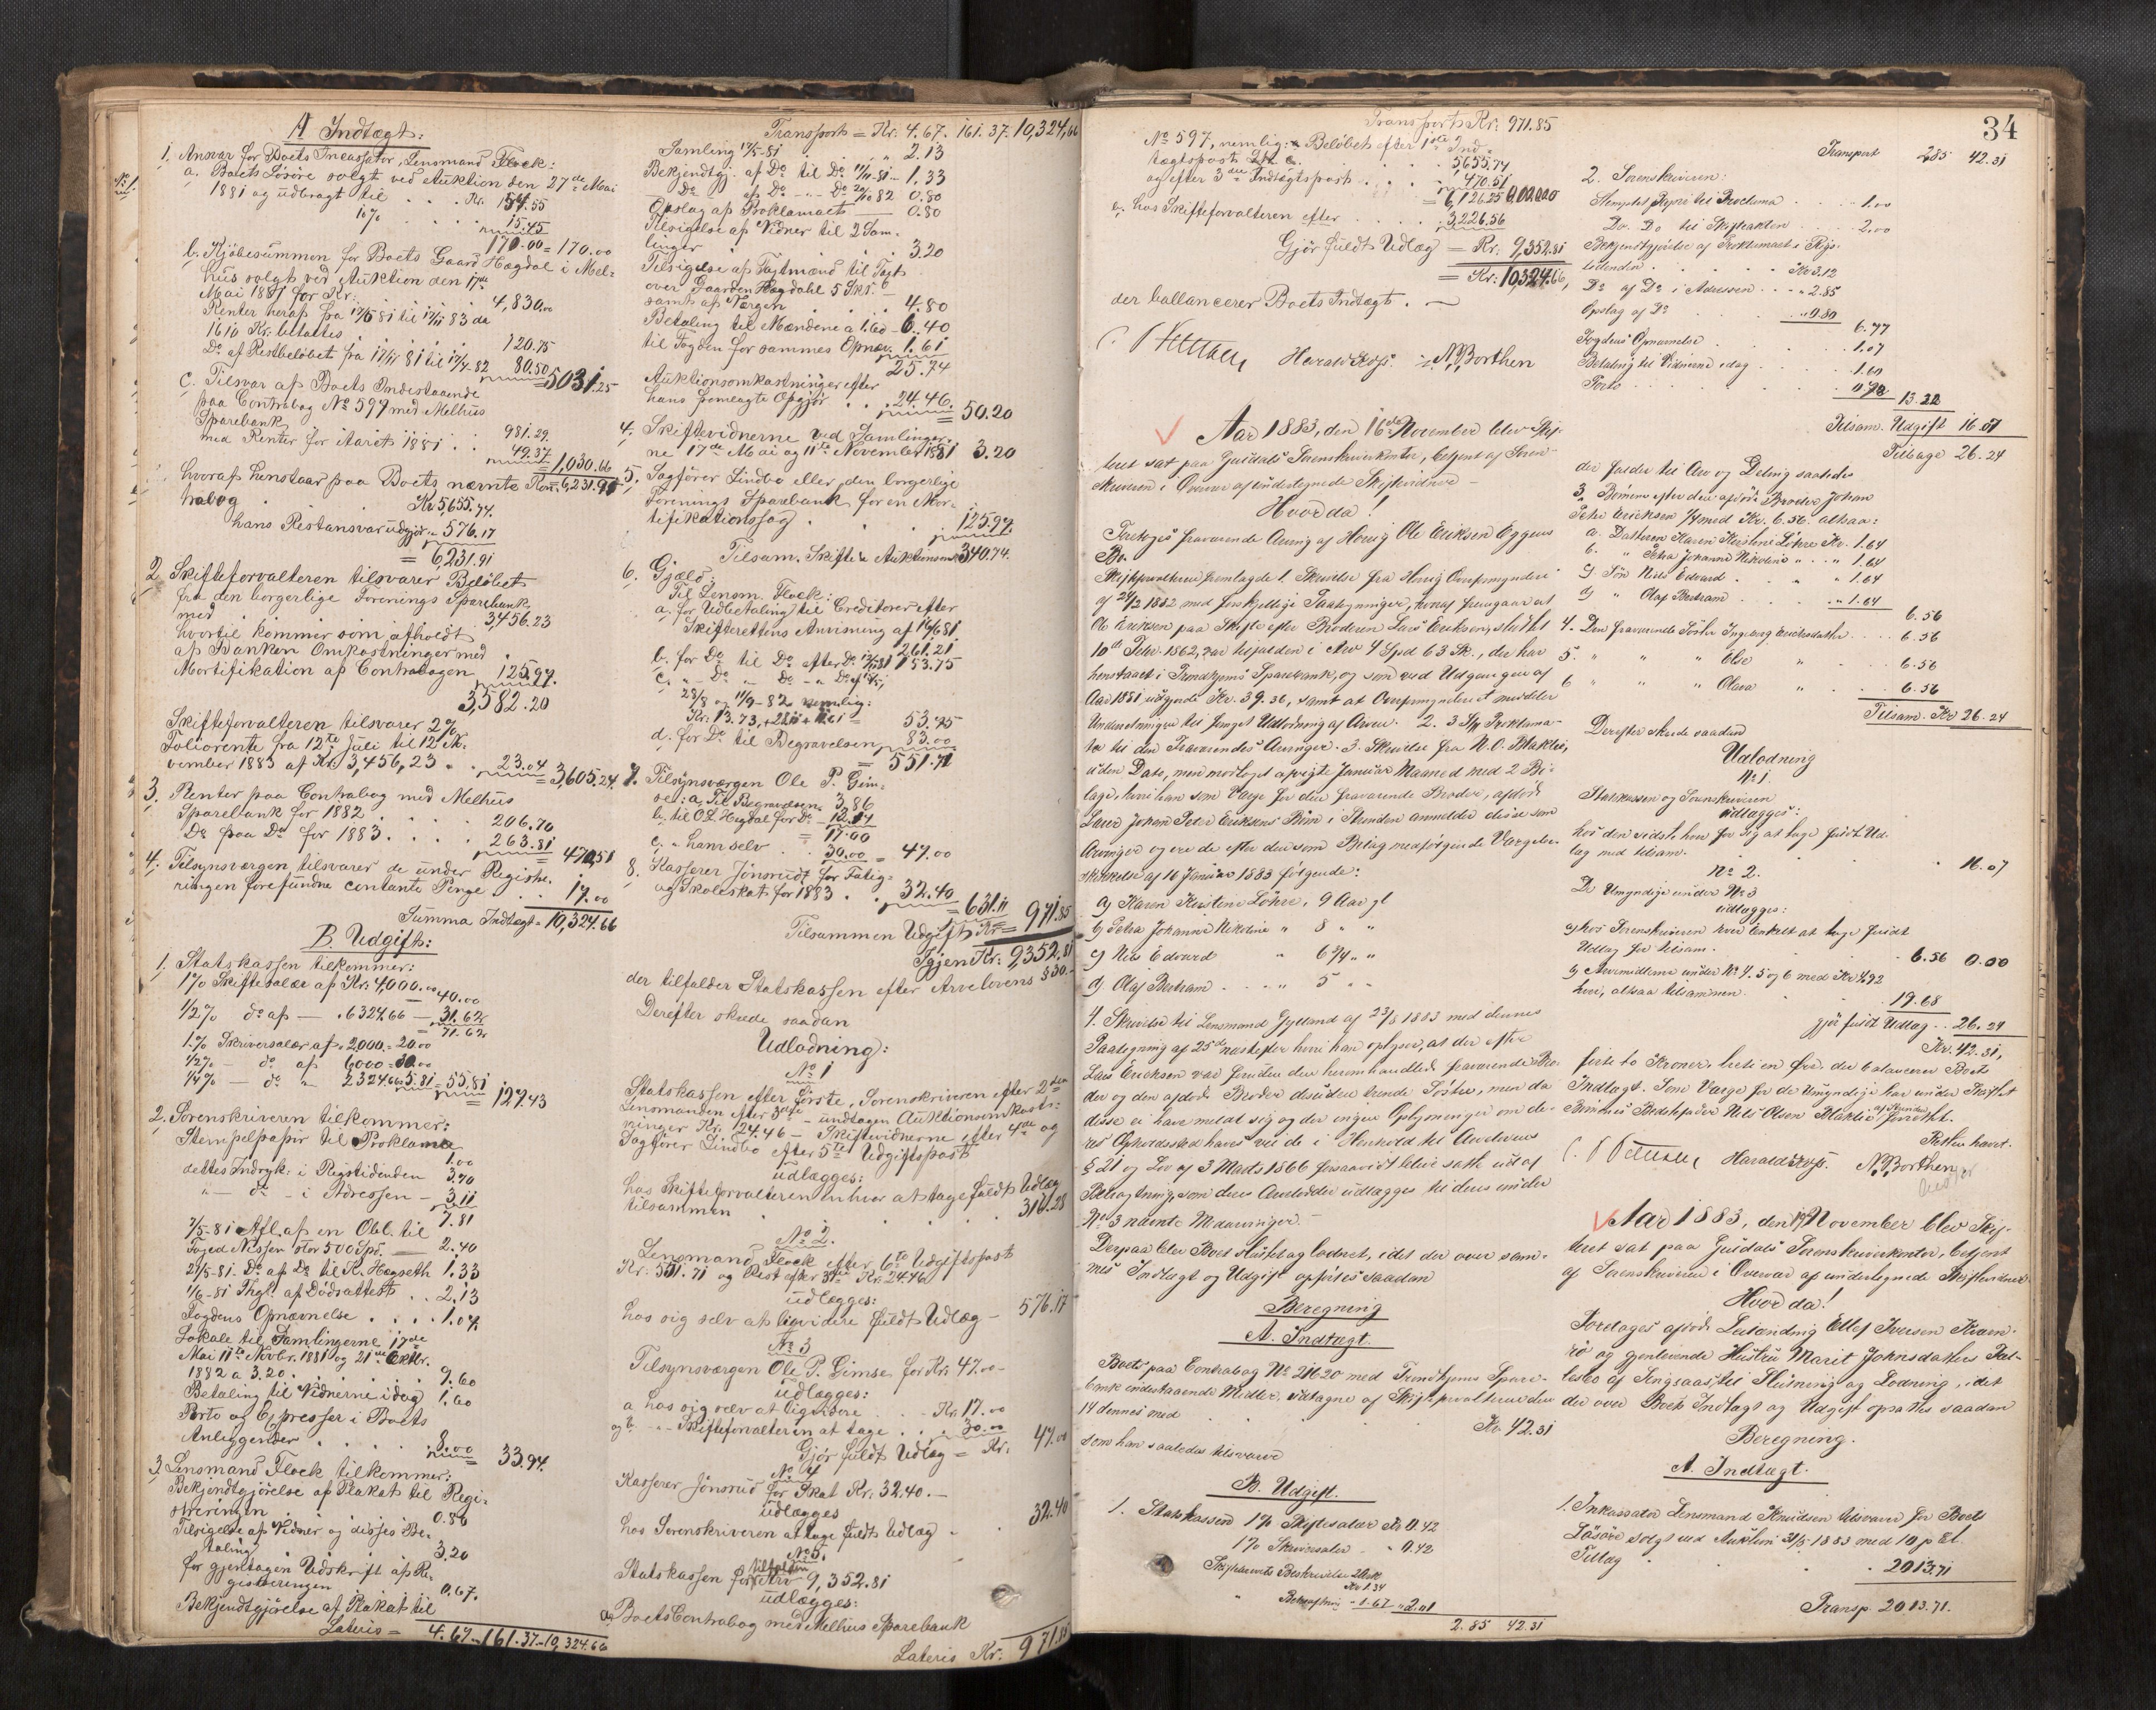 A Indtægt:
1. Ansvar for Boets Incassator, Lensmand Flock:
a. Boets Løsøre solgt ved Auktion den 27de Mai
1881 og udbragt til . . . Kr. 154.55
10% . . . 15.45
170.00 = 170.00
b. Kjøbesummen for Boets Gaard Hægdal i Mel=
hus solgt ved Auktion den 17de
Mai 1881 for Kr. . . 4,830.00
Renter heraf fra 17/5 81 til 17/11 83 da
1610 Kr. betaltes . . . 120.75
Do af Restbeløbet fra 17/11 81 til 17/4 82 80.50
= 5031.25
c. Tilsvar af Boets Indestaaende
paa Contrabog No 597 med Melhus
Sparebank . . . 981.29
med Renter for Aaret 1881 . . 49.37
= 1,030.66
Kr. 6,231.91
hvoraf henstaar paa Boets nævnte Kon=
trabog . . Kr 5,655.74.
hans Restansvar udgjør - 576.17
= 6,231.91
2 Skifteforvalteren tilsvarer Beløbet
fra den borgerlige Forenings Sparebank
med . . . 3,456.23
hvortil kommer som afholdt
af Banken Omkostninger med
Mortifikation af Contrabogen 125.97.
3,582.20
Skifteforvalteren tilsvarer 2%
Foliorente fra 12te Juli til 12 No-
vember 1883 af Kr. 3,456,23 . . 23.04
= 3,605.24
3. Renter paa Contrabog med Melhus
Sparebank for 1882 . . . 206.70
Do paa Do for 1883 . . . 263.81
= 470.51
4. Tilsynsværgen tilsvarer de under Registre-
ringen forefundne contante Penge . . 17.00
Summa Indtægt = 10,324.66
B. Udgift:
1. Statskassen tilkommer:
1% Skiftesalær af Kr. 4,000.00 - 40.00
1/2% do af — 6324.66 — 31.62
71.62
1.% Skriversalær af 2,000 = 20.00
1/2% — do af 6000 = 30.00
1/4% — do " 2324.66 = 5.81 = 55.81
= 127.43
2. Sorenskriveren tilkommer:
Stempelpapir til Proklama
1.00
dettes Indryk: i Rigstidenden 3.70
" — do — i Adressen — 3.11
7.81
7/5-81 Afl. af en Obl. til
Foged Nissen stor 500 Spd. — 2.40
27/5-81. Do af Do til K. Hægseth 1.33
1/6-81 Thgl. af Dødsattest . . 2.13
Fogdens Opnævnelse . . . . 1.07.
Lokale til Samlingerne 17de
Mai 11te Novbr. 1881 og 21de Oktbr.
1882 a 3.20 . . . 9.60
Betaling til Vidnerne idag 1.60
Porto og Expresser i Boets
Anliggender . . . 8.00
33.94.
3 Lensmand Flock tilkommer:
Bekjendtgjørelse af Plakat til Regi-
streringen . . . 0.80
Tilsigelse af Vidner og disses Be-
taling . . . 3.20
for gjentagen Udskrift af Re-
gistreringen 0.67.
Bekjendtgjørelse af Plakat til
Lateris = 4.67 - 161.37 - 10,324.66
Transport = Kr: 4.67. 161.37. 10,324,66
Samling 17/5-81 . . . 2.13
Bekjendtgj. af Do til Do 11/11-81 - 1.33
— Do — af Do — Do 20/10 82 0.80
Opslag af Proklamaet — 0.80
Tilsigelse af Vidner til 2 Sam-
linger . . . 3.20
Tilsigelse af Tagtmænd til Tagt
over Gaarden Hægdahl 5 Skr. -
samt af Værgen . . . 4.80
Betaling til Mændene a 1.60 - 6.40
til Fogden for sammes Opnæv. 1.61
25.74
Auktionsomkostninger efter
hans fremlagte Opgjør . . . 24.46.
= 50.20
4. Skiftevidnerne ved Samlinger-
ne 17de Mai og 11te November 1881 3.20
5. Sagfører Lindbo eller den borgerlige
Forenings Sparebank for en Mor-
tifikationssag . . . 125.97.
Tilsam. Skifte & Auktionsomk. 340.74.
6. Gjæld:
Til Lensm. Flock:
a. for Udbetaling til Creditorer efter
Skifterettens Anvisning af 14/6 81.
261.21
b. for Do til Do efter Do 17/11 81 153.75
28/8 og 11/9 - 82 nemlig:
Kr: 13.73, + 22.11 + 17.61 = 53.75
d. for Do til Begravelsen, 83.00
= 551.71
7. Tilsynsværgen Ole P. Gim-
se: a. Til Begravelsen 3.86
b. til O. L. Hegdal for Do - 13.14
= 17.00
c. " ham selv . . 30.00 = 47.00
8. Kasserer Jønsrudt for Fatig-
og Skoleskat for 1883 . . 32.40
= 631.11 971.85
Tilsammen Udgift Kr =
Igjen Kr: 9,352.81
der tilfalder Statskassen efter Arvelovens § 30.-
Derefter skede saadan
Udlodning:
No 1
Statskassen efter første, Sorenskriveren efter 2den
Lensmanden efter 3die - undtagen Auktionsomkost-
ninger Kr. 24.46 - Skiftevidnerne efter 4de og
Sagfører Lindbo efter 5te Udgiftspost
udlægges:
hos Skifteforvalteren enhver at tage fuldt Udlæg
tilsammen . . . 316.28
No 2.
Lensmand Flock efter 6te Udgiftspost
Kr. 551.71 og Rest efter 3die Kr. 24.46
udlægges:
hos sig selv at liqvidere fuldt Udlæg - 576.17
No 3
Tilsynsværgen Ole P. Gimse for Kr. 47.00 -
udlægges:
a hos sig selv at liqvidere . . Kr 17.00
og b. - - Skifteforvalteren at tage . . 30.00
Gjør fuldt Udlæg = Kr. 47.00
No 4
Kasserer Jønsrud for Skat Kr. 32.40. —
udlægges
hos Sorenskriveren at tage fuldt Udlæg . . 32.40
No 5.
Statskassen for tilfalden Arv 9,352.81
udlægges:
a. Boets Contrabog med Melhus Sparebank
Lateris Kr: 971.85
34
Transport Kr: 971.85
No 597, nemlig: Beløbet efter 1ste Ind-
tægtspost . . . 5655.74
og efter 3die Indtægtspost . . . 470.51
= 6,126.25
b. hos Skifteforvalteren efter . . . 3,226.56
Gjør fuldt Udlæg = Kr: 9,352.81
= Kr: 10,324.66,
der ballancerer Boets Indtægt. —
Harald N. Borthen
Aar 1883, den 16de November blev Skif-
teret sat paa Guldals Sorenskriverkontor, betjent af Soren-
skriveren i Overvær af undertegnede Skiftevidner -
Hvorda!
Foretoges fraværende Arving af Høvig Ole Eriksen Eggens
Bo.
Skifteforvalteren fremlagde 1. Skrivelse fra Høvig Overformynderi
af 24/2 1882 med forskjellige Paategninger, hvoraf fremgaar at
Ole Eriksen paa Skifte efter Broderen Lars Eriksen, sluttet
10de Febr. 1862, var tilfalden i Arv 7 Spd 63 Sk., der har
henstaaet i Trondhjems Sparebank, og som ved Udgangen af
Aar 1881 udgjorde Kr. 39.36, samt at Overformynderiet meddeler
Underretninger til Fanget Udlodning af Arven. 2. 3 Stk Proklama-
ta til den Fraværendes Arvinger. 3. Skrivelse fra N. O. Blaklie,
uden Dato, men modtaget afvigte Januar Maaned med 2 Bi-
lage, hvori han som Værge for den fraværende Broder, afdøde
Lærer Johan Peter Eriksens Børn i Stranden anmelder disse som
Arvinger og ere de efter den som Bilag medfølgende Værgebe-
skikkelse af 16 Januar 1883 følgende:
a) Karen Kirstine Løhre, 9 Aar gl
b) Petra Johanne Nikoline " 8 " "
c) Nils Edvard " 6 3/4 " "
d) Olaf Bertram . . . " 5 " "
4. Skrivelse til Lensmand Gylland af 23/8 1883 med dennes
Paategning af 25de næstefter hvori han oplyser, at der efter
Lars Eriksen var foruden den heromhandlede fraværende Bro-
der og den afdøde Broder desuden trende Søstre, men da
disse ei have meldt sig og der ingen Oplysninger om de-
res Opholdssted haves vil de i Henhold til Arvelovens
§ 21 og Lov af 3 Marts 1866 forsaavidt blive satte ud af
Betragtning, som deres Arvelodder udlægges til deres under
No 3 nævnte Medarvinger. -
Derpaa blev Boet sluttet og loddet, idet der over sam-
mes Indtægt og Udgift opførtes saadan
Beregning
A. Indtægt.
Boets paa Contrabog No 21620 med Trondhjems Spare-
bank indestaaende Midler, udtagne af Skifteforvalteren den
14 dennes med . . . Kr. 42.31
som han saaledes tilsvarer
B. Udgift.
1. Statskassen 1% Skiftesalær Kr 0.42
1% Skriversalær " 0.42
Skifterettens Beskrivelse
Kr 1.34
Bekræftning - 1.67 " 2.01
2.85 42.31
Transport 2.85 42.31
2. Sorenskriveren:
Stemplet Papir til Proclama . . . 1.00
Do. Do til Skifteakten . . . 2.00
Bekjendtgjørelse af Proklamaet i Rigs-
tidenden . . . Kr 3.12
Do af Do i Adressen . . . " 2.85
Opslag af Do . . . " 0.80
6.77
Fogdens Opnævnelse . . . 1.07
Betaling til Vidnerne idag . . . 1.60
Porto . . . 0.78
13.22
Tilsam. Udgift 16.07
Tilbage 26.24
der falder til Arv og Deling saaledes
3. Børnene efter den afdøde Broder Johan
Peter Eriksen 1/4 med Kr. 6.56. altsaa:
a. Datteren Karen Kirstine Løhre Kr. 1.64
b. " Petra Johanne Nikoline " . . " 1.64
c) Søn Nils Edvard . . . " 1.64
d) " Olaf Bertram . . . " 1.64
6.56
4. Den fraværende Søster Ingeborg Eriksdatter . . . 6.56
5. " " " Else " . . 6.56
6 " " " Olava " . . 6.56
Tilsam. Kr 26.24
Derefter skede saadan
Udlodning
No 1.
Statskassen og Sorenskriveren
udlægges:
hos den sidste hver for sig at tage fuldt Ud-
læg med tilsam. . . . 16.07
No 2.
De Umyndige under No 3
udlægges:
a) hos Sorenskriveren hver Enkelt at tage fuldt
Udlæg for tilsam. . . . 6.56 0.00
b) Arvemidlerne under No 4. 5 og 6 med Kr 4.92
hver, altsaa tilsammen . . . 19.68
gjør fuldt Udlæg . . 26.24
Kr. 42.31,
firti to Kroner, treti en Øre, der balancerer Boets
Indtægt. Som Værge for de Umyndige har under Skiftet
Børnenes Bedstefader Nils Olsen Blaklie af Stranden forrettet.
Retten hævet.
Harald N. Borthen
Aar 1883, den 19 November blev Skif-
teret sat paa Guldals Sorenskriverkontor, betjent
af Sorenskriveren i Overvær af undertegnede Skiftevidner
Hvorda!
Foretoges afdøde Ellef Iversen
og gjenlevende Hustru Marit Johnsdatters
af Singsaas, til Slutning og Lodning, idet
der over Boets Indtægt og Udgift opsattes saadan
Beregning.
A. Indtægt.
1. Inkassator Lensmand Knudsen tilsvarer for Boets
Løsøre solgt ved Auktion 31/5 1883 med 10 p Ct.
Tillæg . . . 2013.71
Transp. 2013.71.